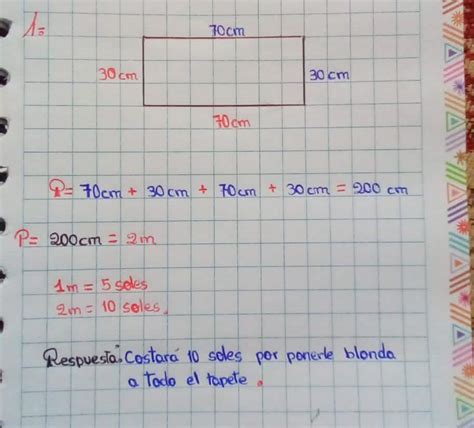 1=
70cm
30cm
30cm
70cm
P= 70cm + 30cm + 70cm + 30cm = 200 cm
P= 200cm = 2m
1m = 5 soles
2m = 10 soles.
Respuesta: Costará 10 soles por ponerle blonda
a Todo el tapete.